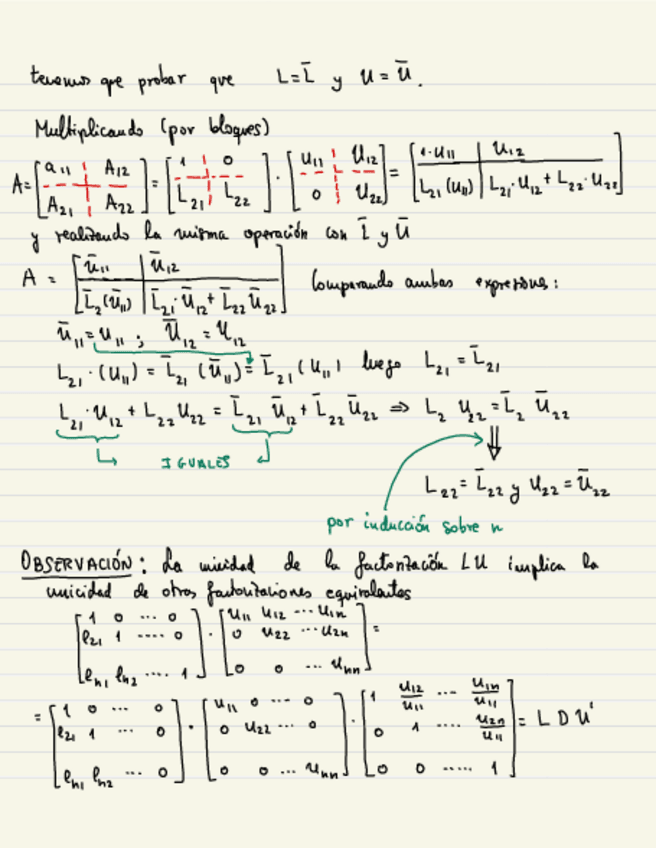 tenemos que probar que L=L̄ y U=Ū.
Multiplicando (por bloques)
A = [a₁₁ A₁₂; A₂₁ A₂₂] = [1 0; L₂₁ L₂₂] · [u₁₁ U₁₂; 0 U₂₂] = [1·u₁₁ U₁₂; L₂₁(u₁₁) L₂₁·U₁₂+L₂₂·U₂₂]
y realizando la misma operación con L̄ y Ū
A = [ū₁₁ ū₁₂; L̄₂(ū₁₁) L̄₂₁·Ū₁₂+L̄₂₂Ū₂₂] Comparando ambas expresiones:
ū₁₁=u₁₁ ; Ū₁₂=U₁₂
L₂₁·(u₁₁) = L̄₂₁(ū₁₁) = L̄₂₁(u₁₁) luego L₂₁=L̄₂₁
L₂₁·U₁₂ + L₂₂U₂₂ = L̄₂₁Ū₁₂ + L̄₂₂Ū₂₂ ⇒ L₂ U₂₂=L̄₂ Ū₂₂
IGUALES
⇓
L₂₂=L̄₂₂ y U₂₂=Ū₂₂
por inducción sobre n
OBSERVACIÓN: La unicidad de la factorización LU implica la
unicidad de otras factorizaciones equivalentes
[1 0 ··· 0; ℓ₂₁ 1 ···· 0; ℓₙ₁ ℓₙ₂ ···· 1] · [u₁₁ u₁₂ ··· u₁ₙ; 0 u₂₂ ··· u₂ₙ; 0 0 ··· uₙₙ] =
= [1 0 ··· 0; ℓ₂₁ 1 ··· 0; ℓₙ₁ ℓₙ₂ ··· 0] · [u₁₁ 0 ··· 0; 0 u₂₂ ··· 0; 0 0 ··· uₙₙ] · [1 u₁₂/u₁₁ ··· u₁ₙ/u₁₁; 0 1 ···· u₂ₙ/u₁₁; 0 0 ····· 1] = L D U'